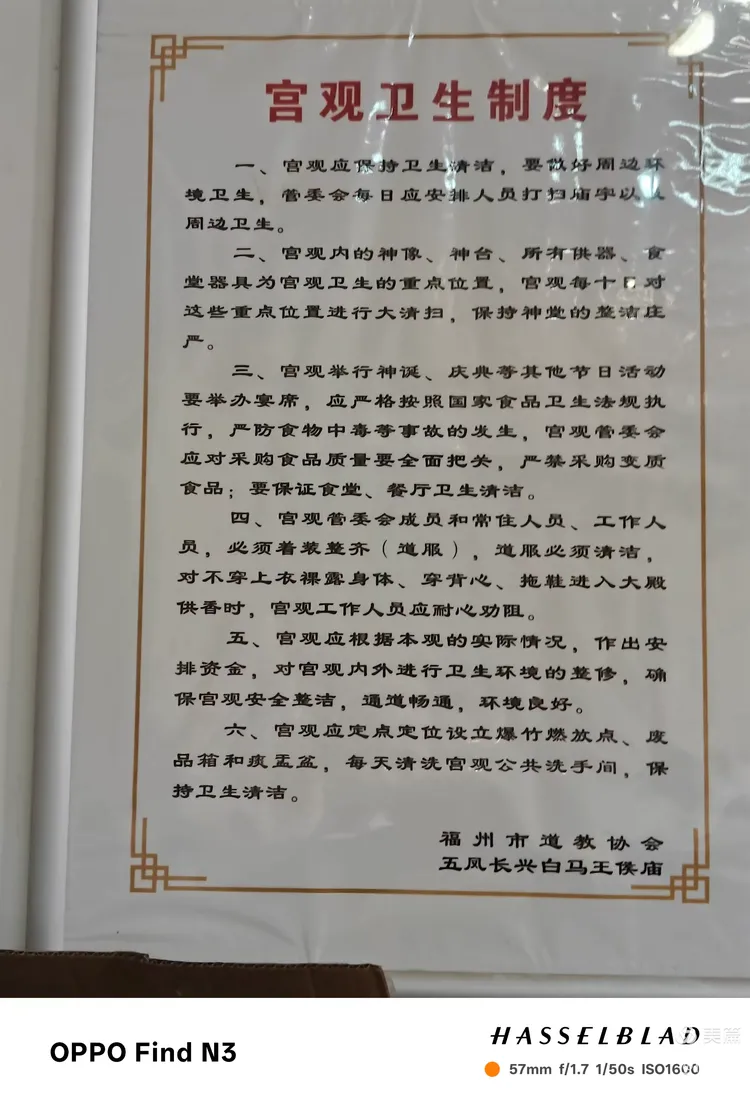 宫观卫生制度
一、宫观应保持卫生清洁，要做好周边环
境卫生，管委会每日应安排人员打扫庙宇以及
周边卫生。
二、宫观内的神像、神台、所有供器、食
堂器具为宫观卫生的重点位置，宫观每十日对
这些重点位置进行大清扫，保持神堂的整洁庄
严。
三、宫观举行神诞、庆典等其他节日活动
要举办宴席，应严格按照国家食品卫生法规执
行，严防食物中毒等事故的发生，宫观管委会
应对采购食品质量要全面把关，严禁采购变质
食品；要保证食堂、餐厅卫生清洁。
四、宫观管委会成员和常住人员、工作人
员，必须着装整齐（道服），道服必须清洁，
对不穿上衣裸露身体、穿背心、拖鞋进入大殿
供香时，宫观工作人员应耐心劝阻。
五、宫观应根据本观的实际情况，作出安
排资金，对宫观内外进行卫生环境的整修，确
保宫观安全整洁，通道畅通，环境良好。
六、宫观应定点定位设立爆竹燃放点、废
品箱和痰盂盆，每天清洗宫观公共洗手间，保
持卫生清洁。
福州市道教协会
五凤长兴白马王侯庙
OPPO Find N3
HASSELBLAD
57mm f/1.7 1/50s ISO1600
美篇